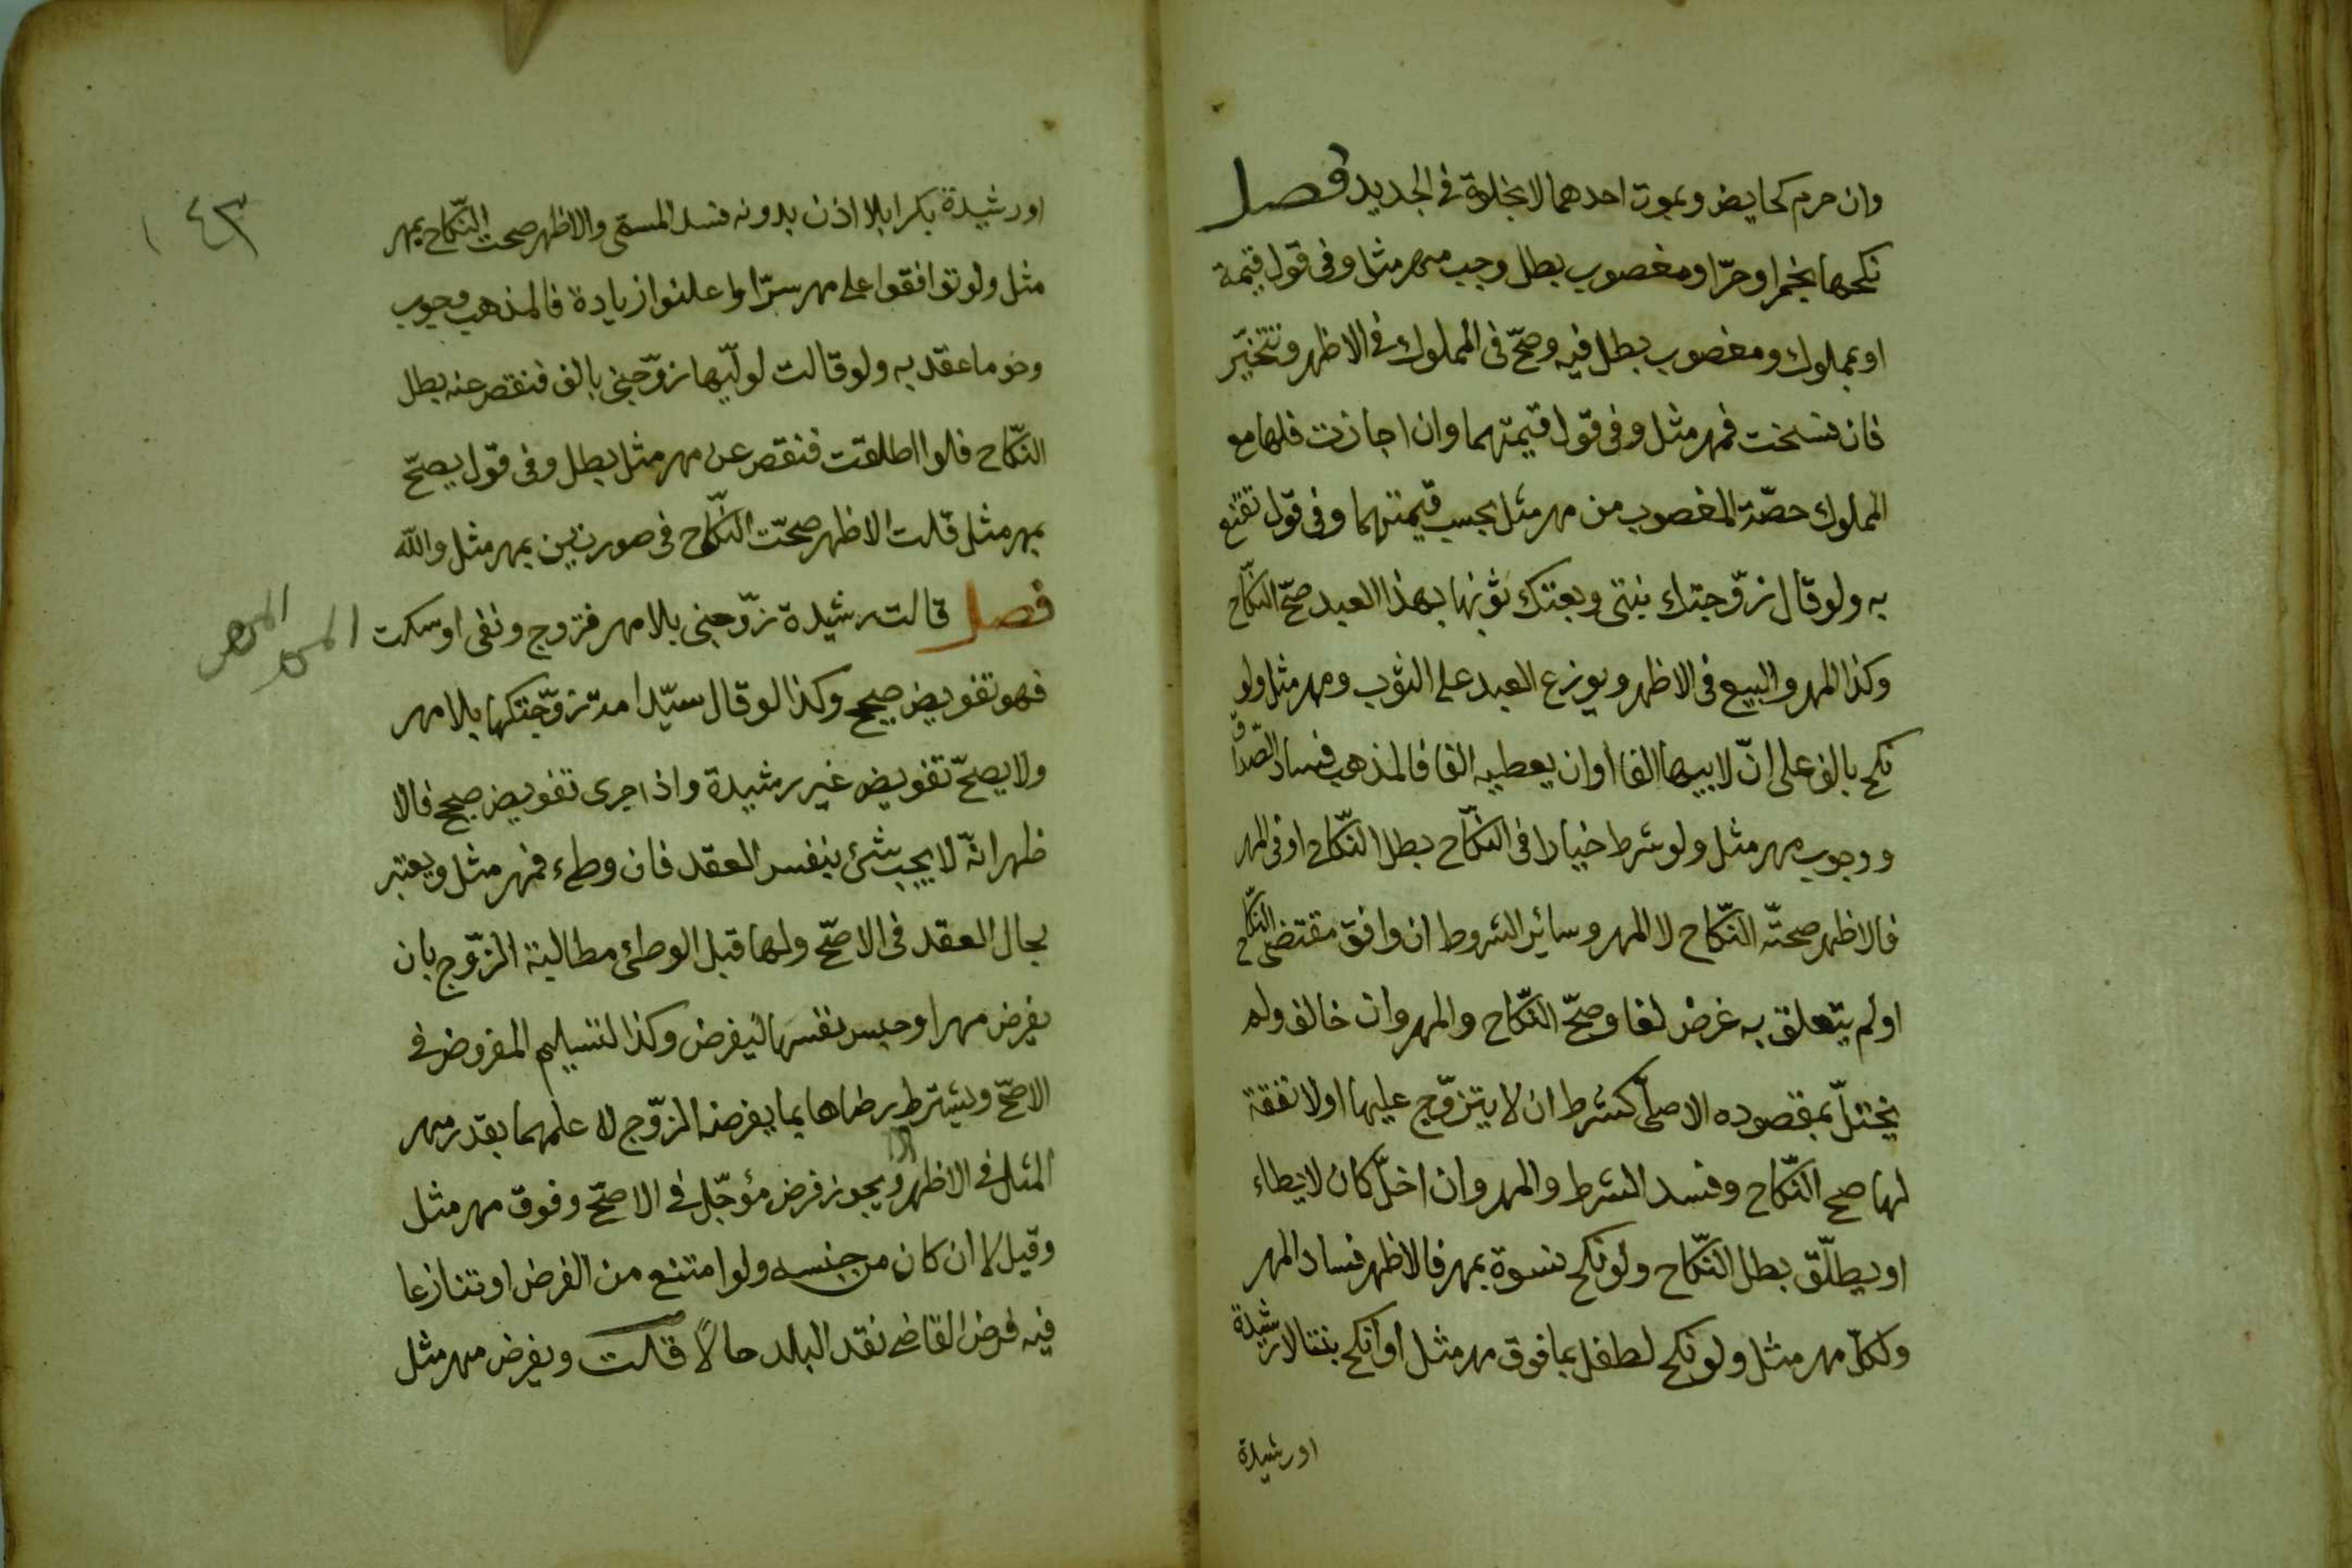 وان حرم كحايض وبموت احدهما لا بخلوة في الجديد فصل
نكحها بخمر او حرّ او مغصوب بطل وجب مهر مثل وفي قول قيمة
او بمملوك ومغصوب بطل فيه وصحّ في المملوك في الاظهر وتتخيّر
فان فسخت فمهر مثل وفي قول قيمتهما وان اجازت فلها مع
المملوك حصّة المغصوب من مهر مثل بحسب قيمتهما وفي قول تقنع
به ولو قال زوّجتك بنتى وبعتك ثوبها بهذا العبد صحّ النكّاح
وكذا المهر والبيع في الاظهر ويوزع العبد على الثوب ومهر مثل ولو
نكح بالف على انّ لابيها الفا او ان يعطيه الفا فالمذهب فساد الصّداق
ووجوب مهر مثل ولو شرط خيارا في النكّاح بطل النكّاح او في المهر
فالاظهر صحتّه النكّاح لا المهر وسائر الشروط ان وافق مقتضى النكّاح
او لم يتعلق به غرض لغا وصحّ النكّاح والمهر وان خالف ولم
يختلّ بمقصوده الاصلّى كشرط ان لا يتزوّج عليها او لا نفقة
لها صح النكّاح وفسد الشرط والمهر وان اخلّ كان لا يطاء
او يطلّق بطل النكّاح ولو نكح نسوة بمهر فالاظهر فساد المهر
ولكلّ مهر مثل ولو نكح لطفل بما فوق مهر مثل او انكح بنتا لا رشيدة
اورشيدة
١٤٣
اورشيدة بكرا بلا اذن بدونه فسد المسمّى والاظهر صحت النكّاح بمهر
مثل ولو توافقوا على مهر سرّا واعلنوا زيادة فالمذهب وجوب
وخو ما عقد به ولو قالت لوليّها زوّجنى بالف فنقص عنه بطل
النكّاح فلو اطلقت فنقص عن مهر مثل بطل وفي قول يصحّ
بمهر مثل قلت الاظهر صحّت النكّاح في صورتين بمهر مثل والله
فصل قالت رشيدة زوّجنى بلا مهر فزوج ونفى او سكت
المهر
فهو تفويض صحيح وكذا لو قال سيّد امة زوّجتكها بلا مهر
ولا يصحّ تفويض غير رشيدة واذا جرى تفويض صحيح فالا
ظهر انّه لا يجب شئ بنفس العقد فان وطء فمهر مثل ويعتبر
بحال العقد في الاصحّ ولها قبل الوطئ مطالبة الزّوج بان
يفرض مهرا وحبس نفسها ليفرض وكذا لتسليم المفروض في
الاصحّ ويشترط رضاها بما يفرضه الزّوج لا علمهما بقدر مهر
المثل في الاظهر ويجوز فرض مؤجّل في الاصحّ وفوق مهر مثل
وقيل لا ان كان من جنسه ولو امتنع من الفرض او تنازعا
فيه فرض القاضى نقد البلد حالاً قلت ويفرض مهر مثل